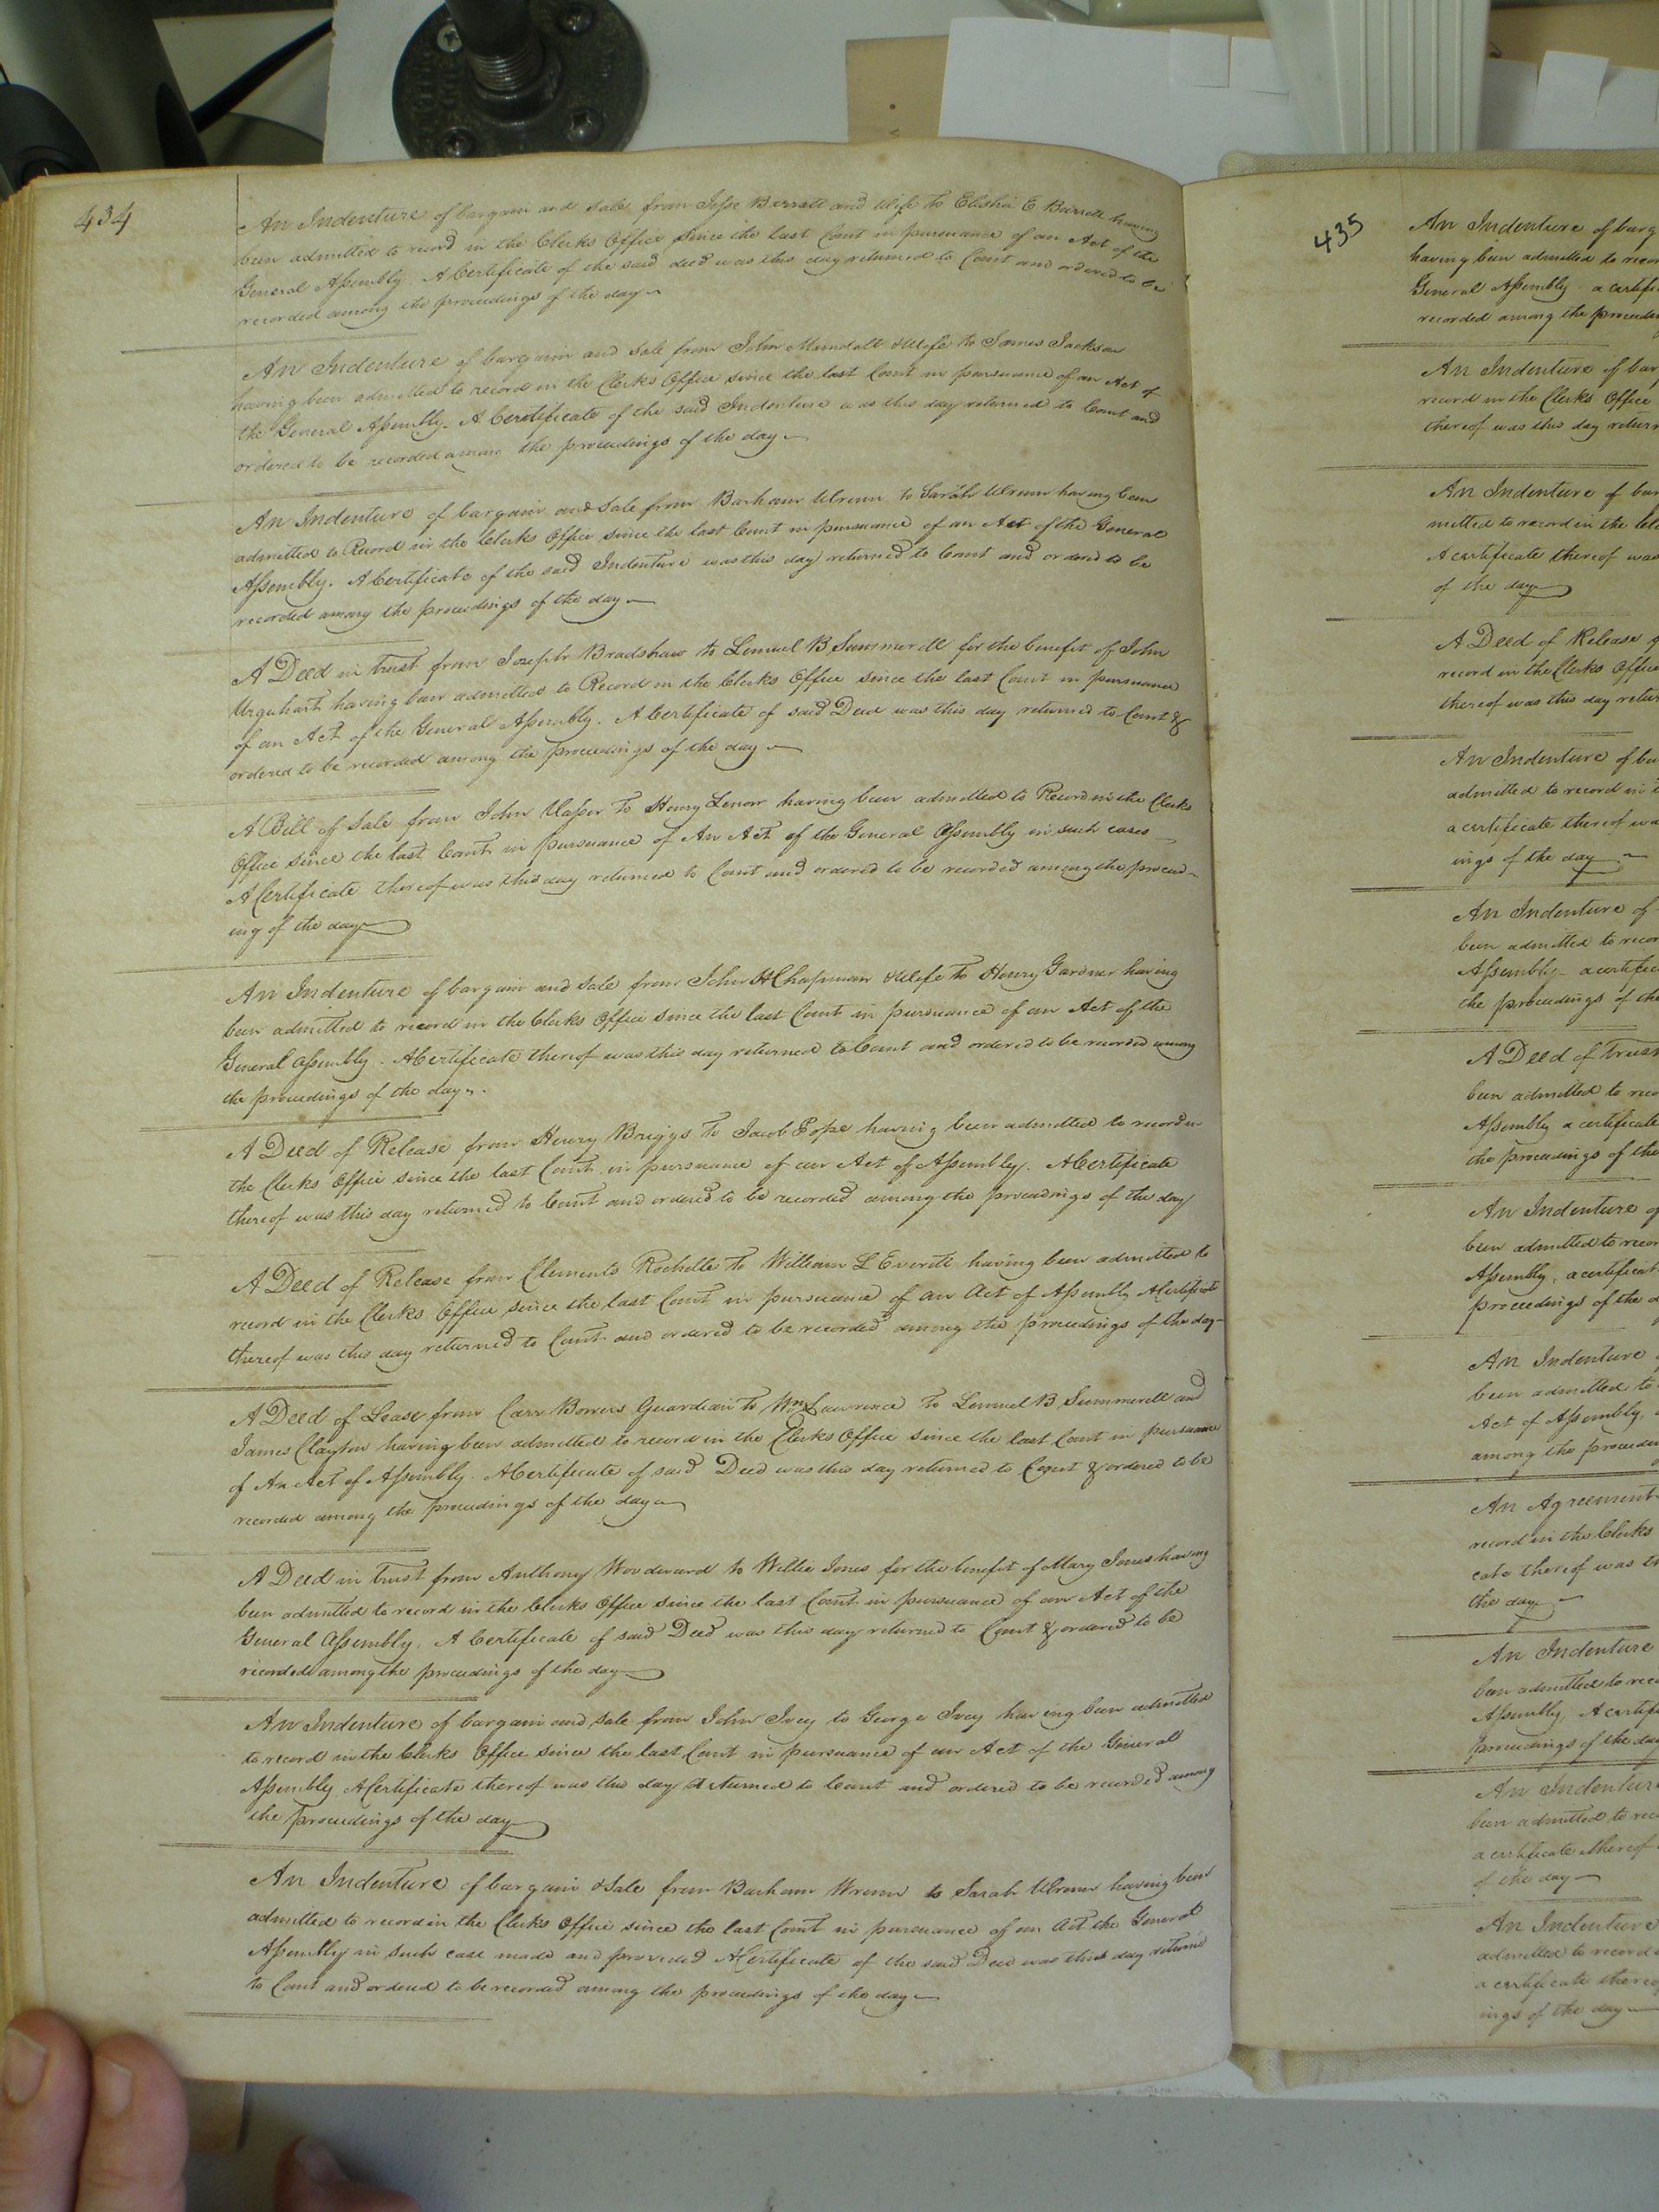 434
An Indenture of bargain and sale from Jesse Barrett and Wife to Elisha E Barrett having
been admitted to record in the Clerks Office Since the last Court in pursuance of an Act of the
General Assembly. A Certificate of the said deed was this day returned to Court and ordered to be
recorded among the proceedings of the day
An Indenture of bargain and sale from John Mundall & Wife to James Jackson
having been admitted to record in the Clerks Office since the last Court in pursuance of an Act of
the General Assembly. A Certificate of the said Indenture was this day returned to Court and
ordered to be recorded among the proceedings of the day
An Indenture of bargain and Sale from Barham Wrenn to Sarah Wrenn having been
admitted to Record in the Clerks Office since the last Court in pursuance of an Act of the General
Assembly. A Certificate of the said Indenture was this day returned to Court and ordered to be
recorded among the proceedings of the day
A Deed in trust from Joseph Bradshaw to Lemuel B. Summerell for the benefit of John
Urquhart having been admitted to Record in the Clerks Office since the last Court in pursuance
of an Act of the General Assembly. A Certificate of said Deed was this day returned to Court &
ordered to be recorded among the proceedings of the day
A Bill of Sale from John Vasser To Henry Lenow having been admitted to Record in the Clerks
Office since the last Court in pursuance of An Act of the General Assembly in such cases
A Certificate thereof was this day returned to Court and ordered to be recorded among the proceed-
ing of the day
An Indenture of bargain and sale from John H Chapman & Wife To Henry Gardner having
been admitted to record in the Clerks Office since the last Court in pursuance of an Act of the
General Assembly. A Certificate thereof was this day returned to Court and ordered to be recorded among
the proceedings of the day.
A Deed of Release from Henry Briggs To Jacob Pope having been admitted to record in
the Clerks Office since the last Court in pursuance of an Act of Assembly. A Certificate
thereof was this day returned to Court and ordered to be recorded among the proceedings of the day
A Deed of Release from Clements Rochelle To William L Everitt having been admitted to
record in the Clerks Office since the last Court in pursuance of an Act of Assembly A Certificate
thereof was this day returned to Court and ordered to be recorded among the proceedings of the day-
A Deed of Lease from Carr Bowers Guardian To Wm Lawrence To Lemuel B. Summerell and
James Clayton having been admitted to record in the Clerks Office since the last Court in pursuance
of An Act of Assembly. A Certificate of said Deed was this day returned to Court & ordered to be
recorded among the proceedings of the day
A Deed in trust from Anthony Woodward to Willie Jones for the benefit of Mary Jones having
been admitted to record in the Clerks Office since the last Court in pursuance of an Act of the
General Assembly. A Certificate of said Deed was this day returned to Court & ordered to be
recorded among the proceedings of the day
An Indenture of bargain and sale from John Ivey to George Ivey having been admitted
to record in the Clerks Office since the last Court in pursuance of an Act of the General
Assembly A Certificate thereof was this day returned to Court and ordered to be recorded among
the proceedings of the day
An Indenture of bargain & Sale from Barham Wrenn to Sarah Wrenn having been
admitted to record in the Clerks Office since the last Court in pursuance of an Act the General
Assembly in such case made and provided A Certificate of the said Deed was this day returned
to Court and ordered to be recorded among the proceedings of the day
435
An Indenture of barg
having been admitted to recor
General Assembly a certifi
recorded among the proceedi
An Indenture of bar
record in the Clerks Office
thereof was this day return
An Indenture of bar
mitted to record in the Cle
A certificate thereof was
of the day
A Deed of Release
record in the Clerks Office
thereof was this day retur
An Indenture of ba
admitted to record in
a certificate thereof wa
ings of the day
An Indenture of
been admitted to recor
Assembly - a certific
the proceedings of the
A Deed of Trust
been admitted to reco
Assembly a certificate
the proceedings of the
An Indenture of
been admitted to recor
Assembly, a certificat
proceedings of the d
An Indenture
been admitted to
Act of Assembly,
among the proceedi
An Agreement
record in the Clerks
cate thereof was th
the day
An Indenture
been admitted to reco
Assembly, A certifi
proceedings of the day
An Indenture
been admitted to rec
a certificate thereof
of the day
An Indenture
admitted to record
a certificate thereof
ings of the day